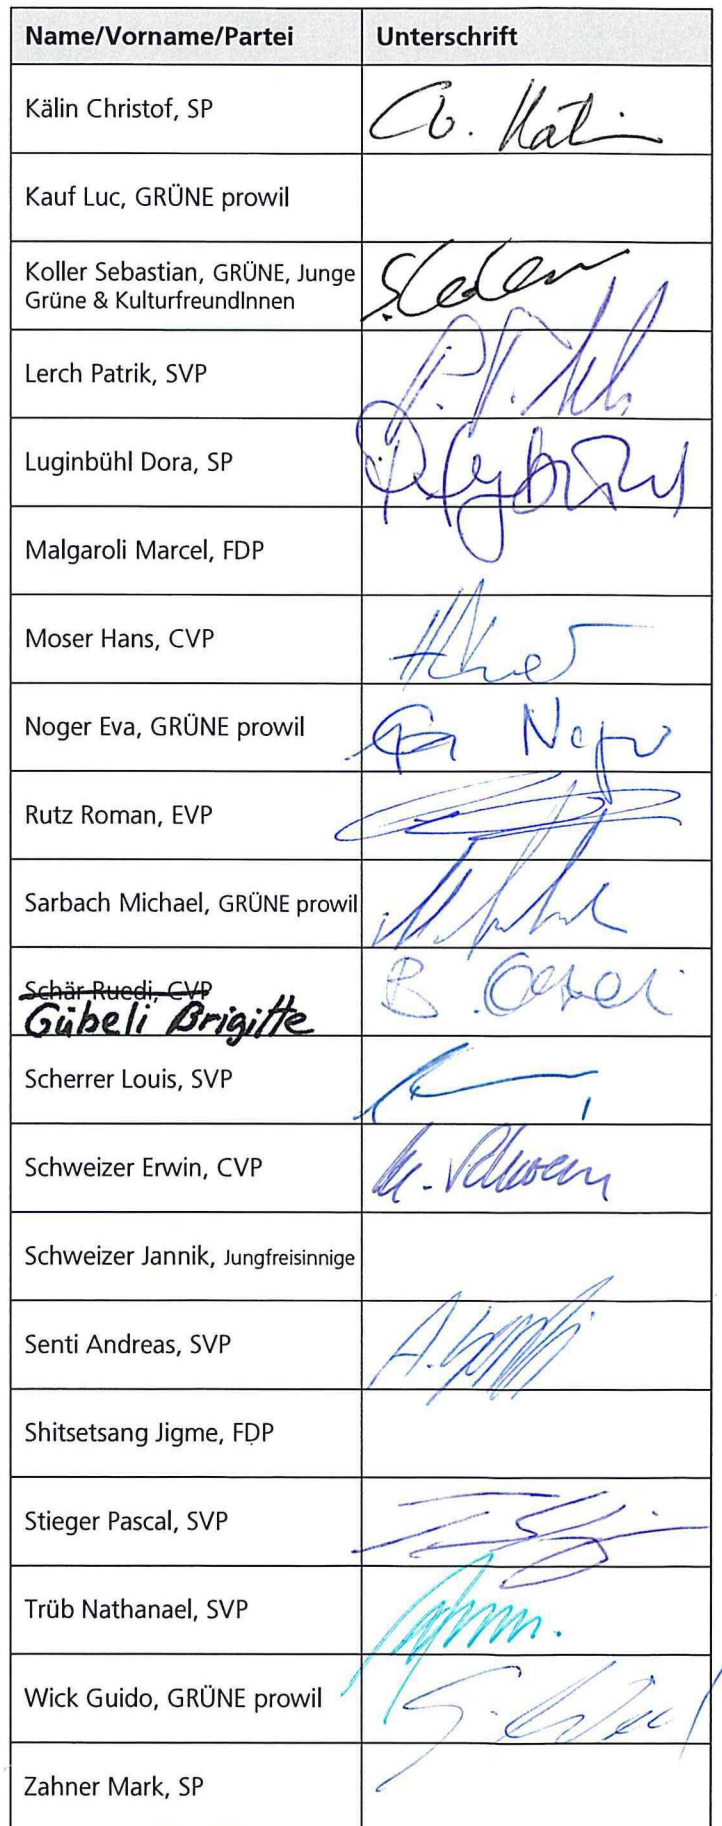 Name/Vorname/Partei Unterschrift
Kälin Christof, SP
Kauf Luc, GRÜNE prowil
Koller Sebastian, GRÜNE, Junge
Grüne & KulturfreundInnen
Lerch Patrik, SVP
Luginbühl Dora, SP
Malgaroli Marcel, FDP
Moser Hans, CVP
Noger Eva, GRÜNE prowil
Rutz Roman, EVP
Sarbach Michael, GRÜNE prowil
Schär Ruedi, CVP
Gübeli Brigitte
Scherrer Louis, SVP
Schweizer Erwin, CVP
Schweizer Jannik, Jungfreisinnige
Senti Andreas, SVP
Shitsetsang Jigme, FDP
Stieger Pascal, SVP
Trüb Nathanael, SVP
Wick Guido, GRÜNE prowil
Zahner Mark, SP